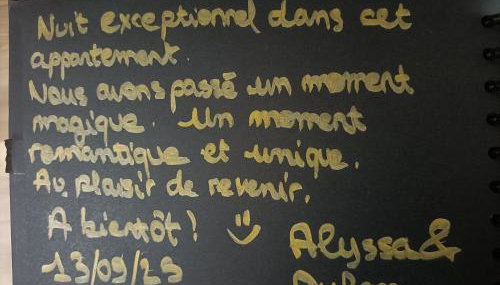 Nuit exceptionnel dans cet
appartement.
Nous avons passé un moment
magique. Un moment
romantique et unique.
Au plaisir de revenir.
A bientôt !
Alyssa &
13/09/25